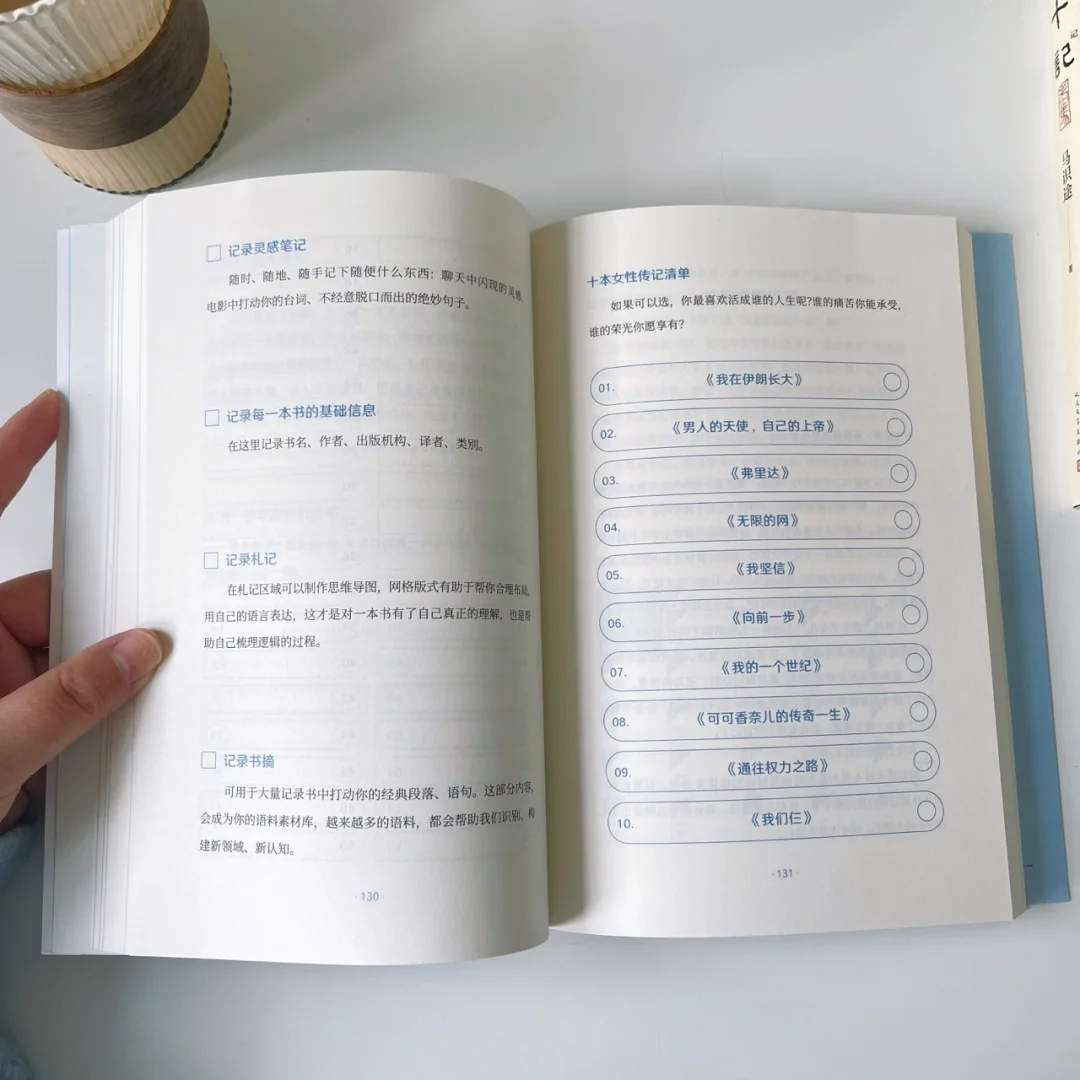 记录灵感笔记
随时、随地、随手记下随便什么东西：聊天中闪现的灵感、
电影中打动你的台词、不经意脱口而出的绝妙句子。
记录每一本书的基础信息
在这里记录书名、作者、出版机构、译者、类别。
记录札记
在札记区域可以制作思维导图，网格版式有助于帮你合理布局。
用自己的语言表达，这才是对一本书有了自己真正的理解，也是帮
助自己梳理逻辑的过程。
记录书摘
可用于大量记录书中打动你的经典段落、语句。这部分内容，
会成为你的语料素材库，越来越多的语料，都会帮助我们识别、构
建新领域、新认知。
·130·
十本女性传记清单
如果可以选，你最喜欢活成谁的人生呢?谁的痛苦你能承受，
谁的荣光你愿享有?
01. 《我在伊朗长大》
02. 《男人的天使，自己的上帝》
03. 《弗里达》
04. 《无限的网》
05. 《我坚信》
06. 《向前一步》
07. 《我的一个世纪》
08. 《可可香奈儿的传奇一生》
09. 《通往权力之路》
10. 《我们仨》
·131·
十记
马识途
著